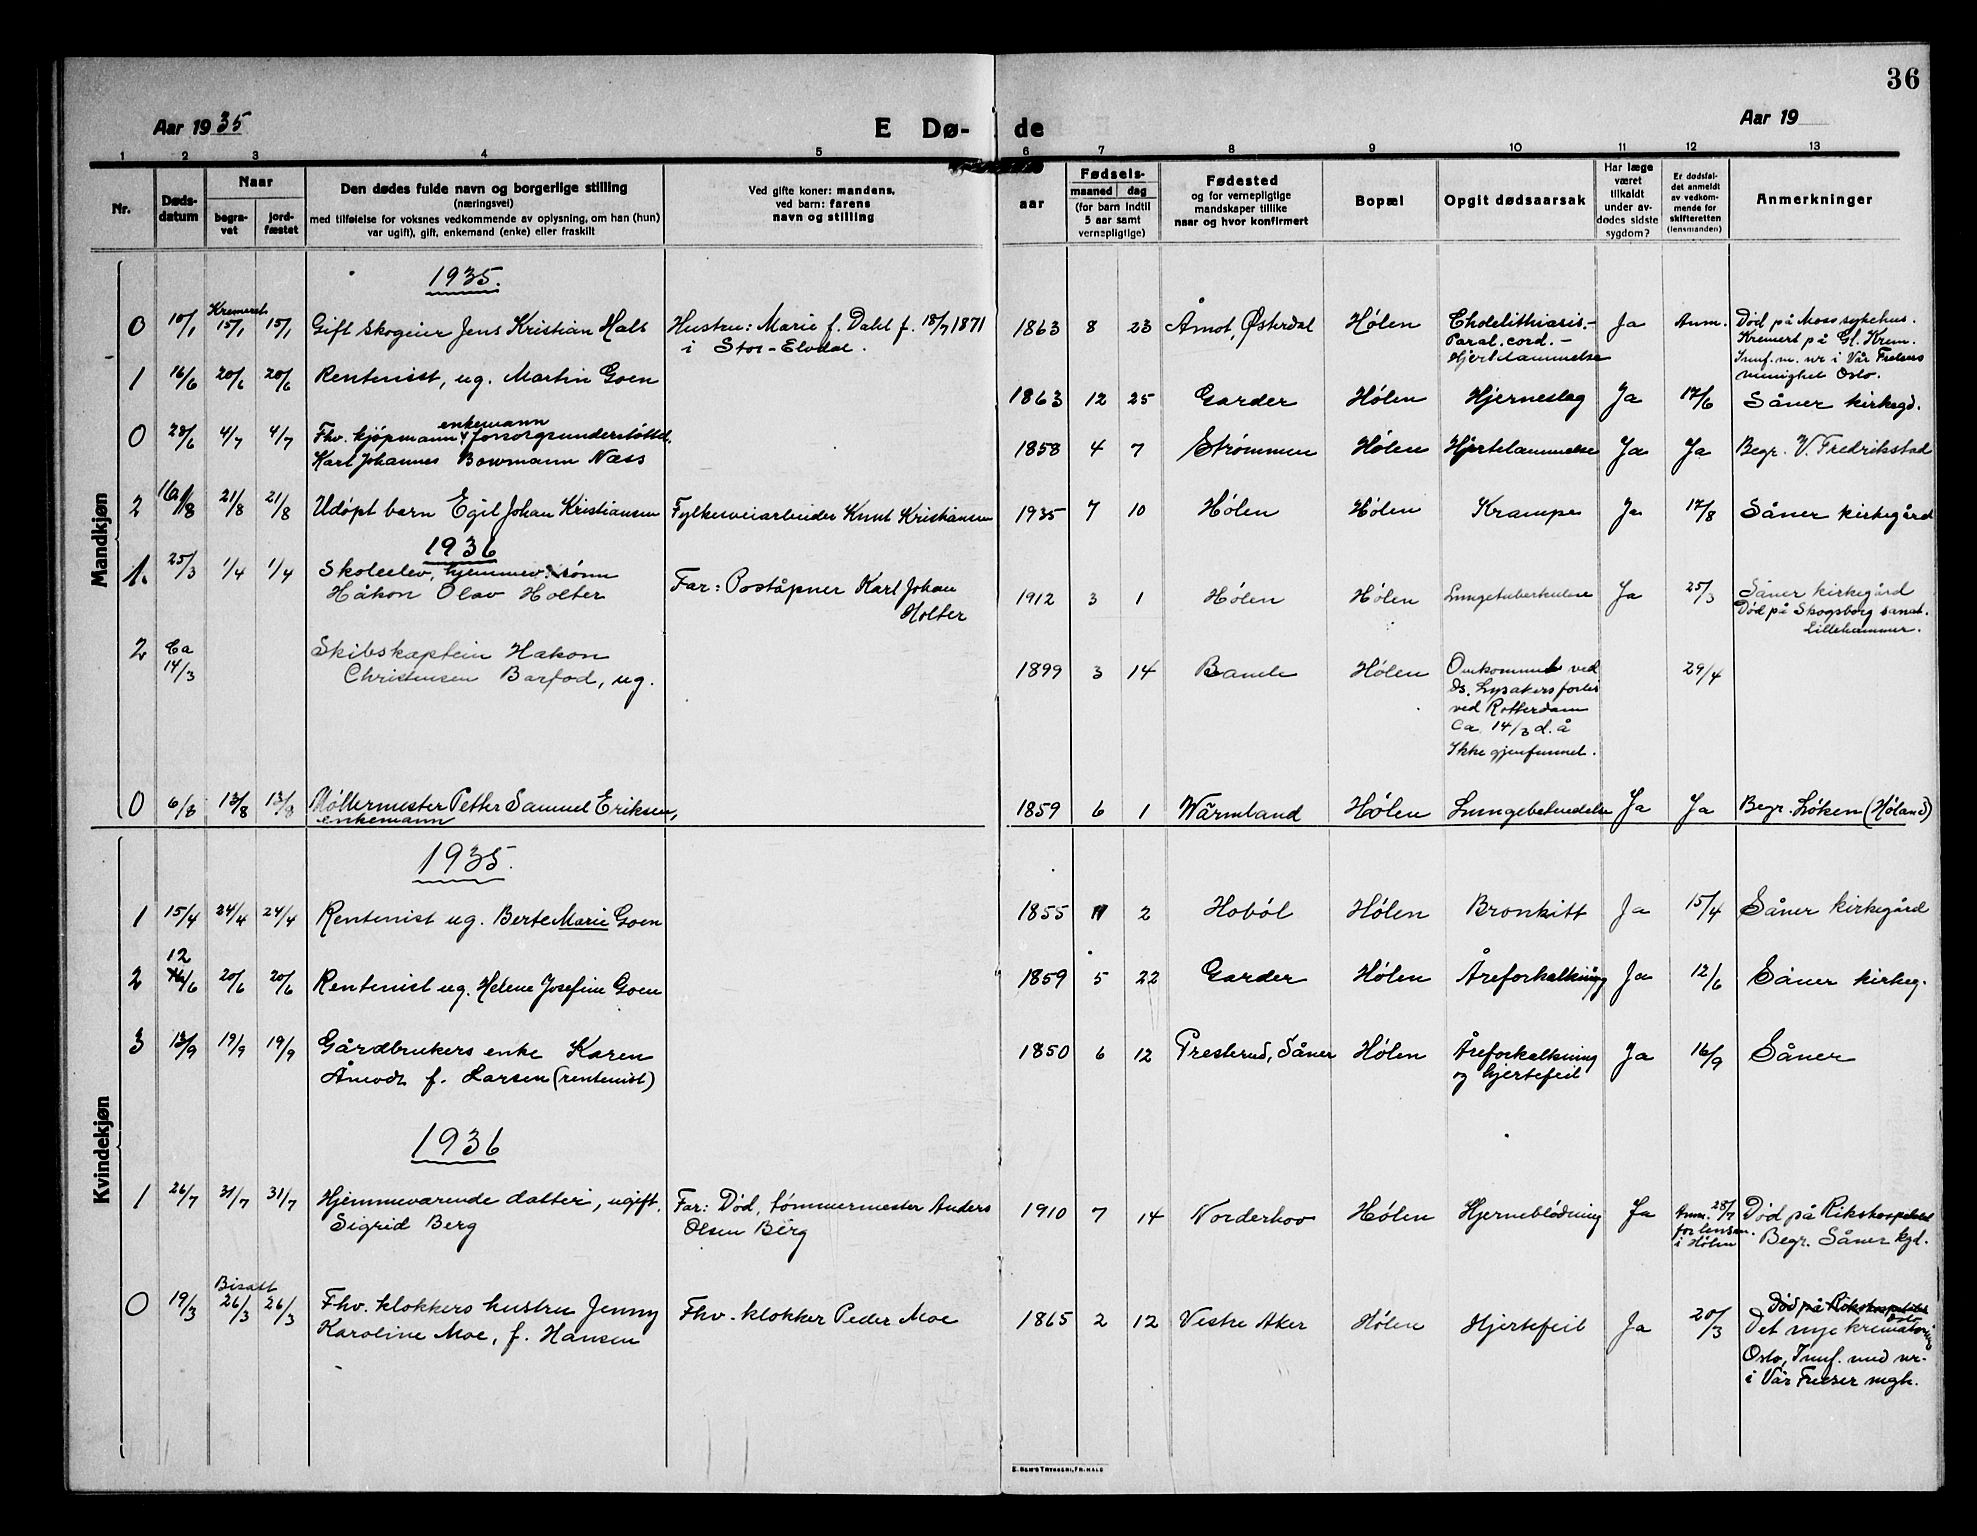 36
Aar 1935
E Dø- de
Aar 19
1 2 3 4 5 6 7 8 9 10 11 12 13
Nr.
Døds-
datum
Naar
begra-
vet
jord-
fæstet
Den dødes fulde navn og borgerlige stilling
(næringsvei)
med tilføielse for voksnes vedkommende av oplysning, om han (hun)
var ugift), gift, enkemand (enke) eller fraskilt
Ved gifte koner: mandens,
ved barn: farens
navn og stilling
Fødsels-
aar
maaned dag
(for barn indtil
5 aar samt
vernepligtige)
Fødested
og for vernepligtige
mandskaper tillike
naar og hvor konfirmert
Bopæl
Opgit dødsaarsak
Har læge
været
tilkaldt
under av-
dødes sidste
sygdom?
Er dødsfal-
det anmeldt
av vedkom-
mende for
skifteretten
(lensmanden)
Anmerkninger
Mandkjøn
1935.
Kremert
0 10/1 15/1 15/1 Gift Skogeier Jens Kristian Hals Hustru: Marie f. Dahl f. 18/7 1871 1863 8 23 Åmot, Østerdal Hølen Cholelithiasis.- Ja Anm. Død på Moss sykehus.
i Stor-Elvdal. Paral. cord. - Kremert på Gl. Krem.
Hjertelammelse Innf. m. nr i Vår Frelsers
menighet Oslo.
1 16/6 20/6 20/6 Rentenist, ug. Martin Goen 1863 12 25 Garder Hølen Hjerneslag Ja 17/6 Såner kirkegd.
enkemann
0 28/6 4/7 4/7 Fhv. kjøpmann, forsorgsunderstøttet. 1858 4 7 Strømmen Hølen Hjertelammelse Ja Ja Begr. V. Fredrikstad
Karl Johannes Bowmann Næss
2 16/8 21/8 21/8 Udøpt barn Egil Johan Kristiansen Fylkesveiarbeider Knut Kristiansen 1935 7 10 Hølen Hølen Krampe Ja 17/8 Såner kirkegård
1936
1. 25/3 1/4 1/4 Skoleelev, hjemmev. sønn Far: Poståpner Karl Johan 1912 3 1 Hølen Hølen Lungetuberkulose Ja 25/3 Såner kirkegård
Håkon Olav Holter Holter Død på Skogsborg sanat.
Lillehammer.
2 Ca 14/3 Skibskaptein Hakon 1899 3 14 Bamle Hølen Omkommet ved 29/4
Christensen Barfod, ug. ds. Lysakers forlis
ved Rotterdam
Ca 14/3 d. å
Ikke gjenfunnet.
0 6/8 13/8 13/8 Møllermester Petter Samuel Eriksen, 1859 6 1 Wärmland Hølen Lungebetendelse Ja Ja Begr. Løken (Høland)
enkemann
Kvindekjøn
1935.
1 15/4 24/4 24/4 Rentenist ug. Berte Marie Goen 1855 11 2 Hobøl Hølen Bronkitt Ja 15/4 Såner kirkegård
12
2 16/6 20/6 20/6 Rentenist ug. Helene Josefine Goen 1859 5 22 Garder Hølen Åreforkalkning Ja 12/6 Såner kirkeg.
3 13/9 19/9 19/9 Gårdbrukers enke Karen 1850 6 12 Presterud, Såner Hølen Åreforkalkning Ja 16/9 Såner
Åmodt f. Larsen (rentenist) og hjertefeil
1936
1 26/7 31/7 31/7 Hjemmeværende datter, ugift. Far: Død, tømmermester Anders 1910 7 14 Norderhov Hølen Hjerneblødning Ja Anm. 28/7 Død på Rikshospitalet
Sigrid Berg Olsen Berg for lensm. Begr. Såner kgd.
i Hølen
Bisatt
0 19/3 26/3 26/3 Fhv. klokkers hustru Jenny Fhv. klokker Peder Moe 1865 2 12 Vestre Aker Hølen Hjertefeil Ja 20/3 Død på Rikshospitalet
Karoline Moe, f. Hansen Oslo
Det nye krematorium
Oslo, Innf. med nr.
i Vår Frelser mgh.
E. SEM'S TRYKKERI, FR.HALD